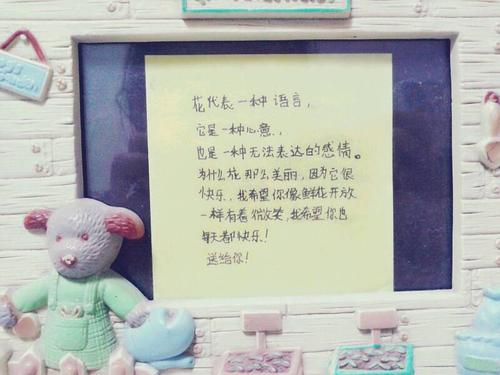 花代表一种语言，
它是一种心意，
也是一种无法表达的感情。
为什么花那么美丽，因为它很
快乐，我希望你像鲜花开放
一样有着微笑，我希望你也
每天都快乐！
送给你！